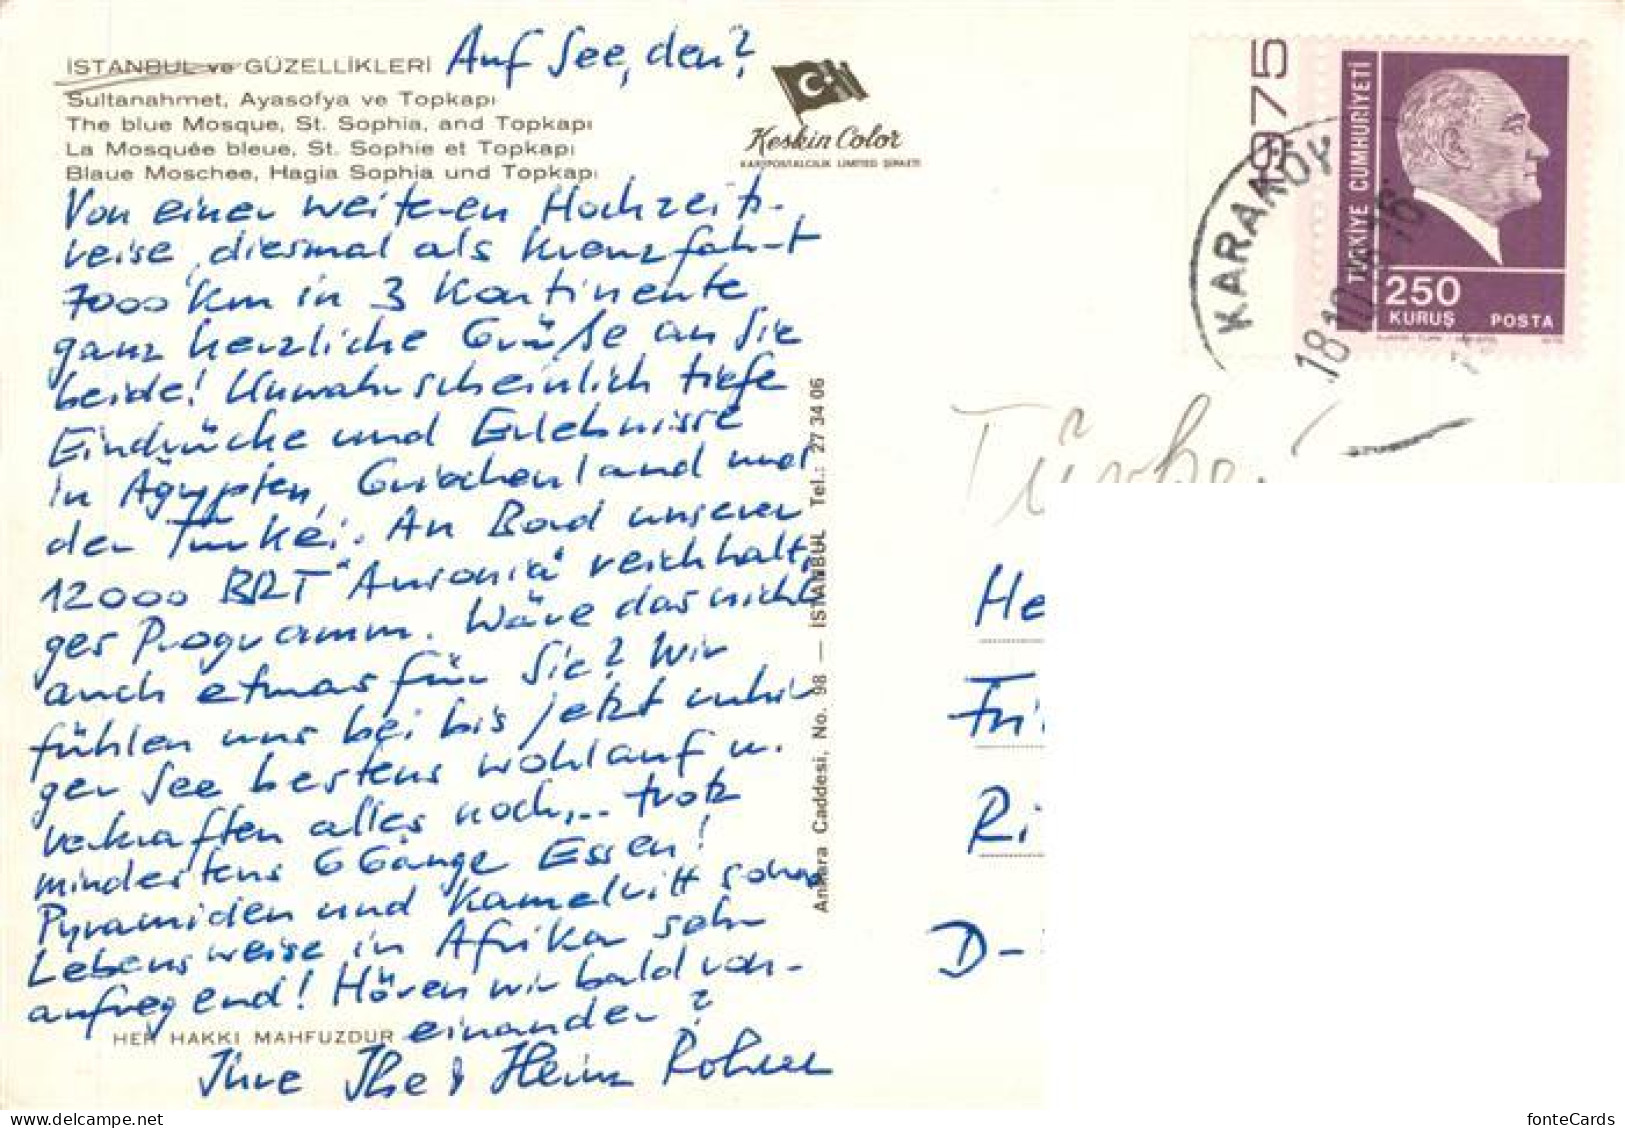 İSTANBUL ve GÜZELLİKLERİ
Auf See, den?
Sultanahmet, Ayasofya ve Topkapı
The blue Mosque, St. Sophia, and Topkapı
La Mosquée bleue, St. Sophie et Topkapı
Blaue Moschee, Hagia Sophia und Topkapı
Keskin Color
KARTPOSTALCILIK LIMITED ŞİRKETİ
Von einer weiteren Hochzeits-
reise, diesmal als Kreuzfahrt
7000 Km in 3 Kontinente
ganz herzliche Grüße an Sie
beide! Unwahrscheinlich tiefe
Eindrücke und Erlebnisse
in Ägypten, Griechenland und
der Türkei. An Bord unserer
12000 BRT "Ausonia" reichhalti-
ges Programm. Wäre das nicht
auch etwas für Sie? Wir
fühlen uns bei bis jetzt ruhi-
ger See bestens wohlauf u.
verkraften alles noch... trotz
mindestens 6 Gänge Essen!
Pyramiden und Kamelritt sowie
Lebensweise in Afrika sehr
aufregend! Hören wir bald von-
einander?
HER HAKKI MAHFUZDUR
Ihre Ilse & Heinz
Ankara Caddesi, No. 98 — İSTANBUL Tel.: 27 34 06
975
TÜRKİYE CUMHURİYETİ
250
KURUŞ POSTA
KARAKÖY
18.10
Türkei
He
Fri
Ri
D-
fonteCards